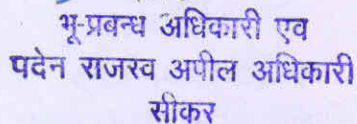 भू-प्रबन्ध अधिकारी एव
पदेन राजरव अपील अधिकारी
सीकर